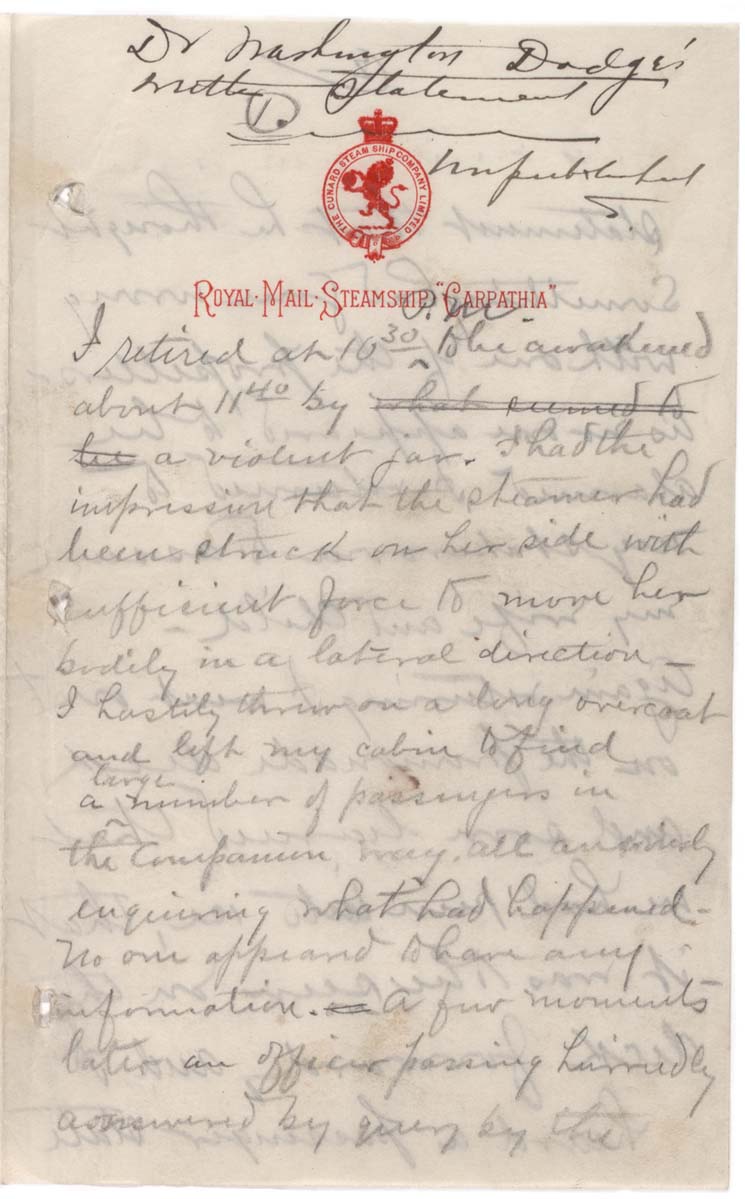 Dr Washington Dodge's
Statement
1.
Unpublished
THE CUNARD STEAM SHIP COMPANY LIMITED
ROYAL·MAIL·STEAMSHIP·"CARPATHIA"
P.M.
I retired at 10 30 to be awakened
about 11 40 by what seemed to
be a violent jar. I had the
impression that the steamer had
been struck on her side with
sufficient force to move her
bodily in a lateral direction –
I hastily threw on a long overcoat
and left my cabin to find
large
a number of passengers in
the Companion way, all anxiously
enquiring what had happened –
No one appeared to have any
information. – A few moments
later an officer passing hurriedly
answered by query by the